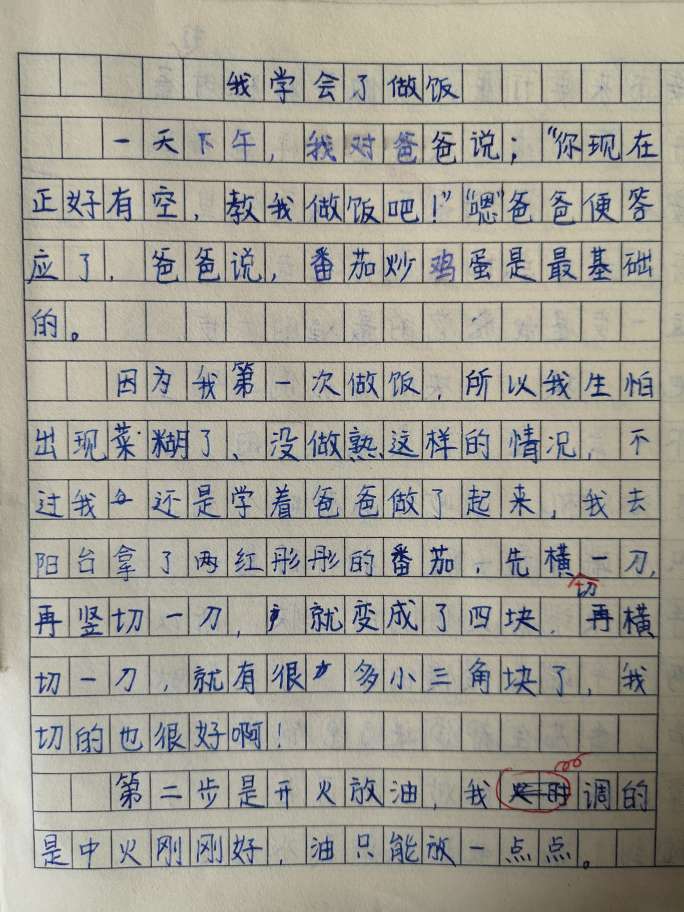 我学会了做饭
一天下午，我对爸爸说；“你现在
正好有空，教我做饭吧！”“嗯”爸爸便答
应了，爸爸说，番茄炒鸡蛋是最基础
的。
因为我第一次做饭，所以我生怕
出现菜糊了、没做熟这样的情况，不
过我还是学着爸爸做了起来，我去
阳台拿了两红彤彤的番茄，先横切一刀，
再竖切一刀，就变成了四块，再横
切一刀，就有很多小三角块了，我
切的也很好啊！
第二步是开火放油，我调的
是中火刚刚好，油只能放一点点。